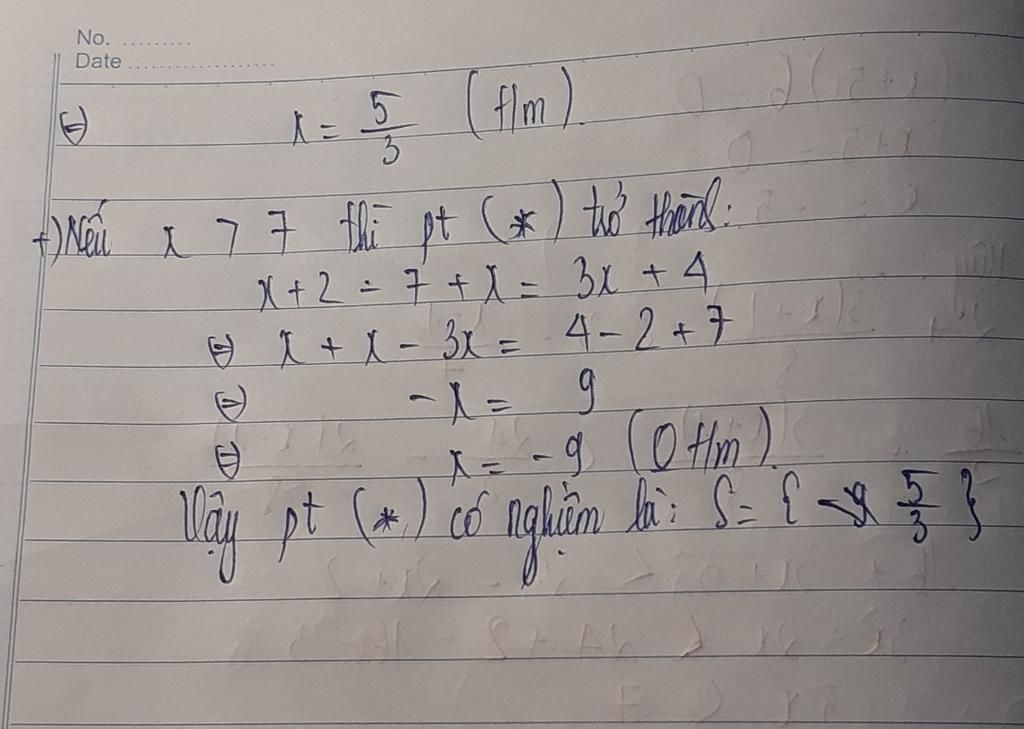 No. .........
Date ...................
⇔ x = 5/3 (t/m).
+) Nếu x > 7 thì pt (*) trở thành:
x + 2 - 7 + x = 3x + 4
⇔ x + x - 3x = 4 - 2 + 7
⇔ -x = 9
⇔ x = -9 (0 t/m).
Vậy pt (*) có nghiệm là: S = { 5/3 }